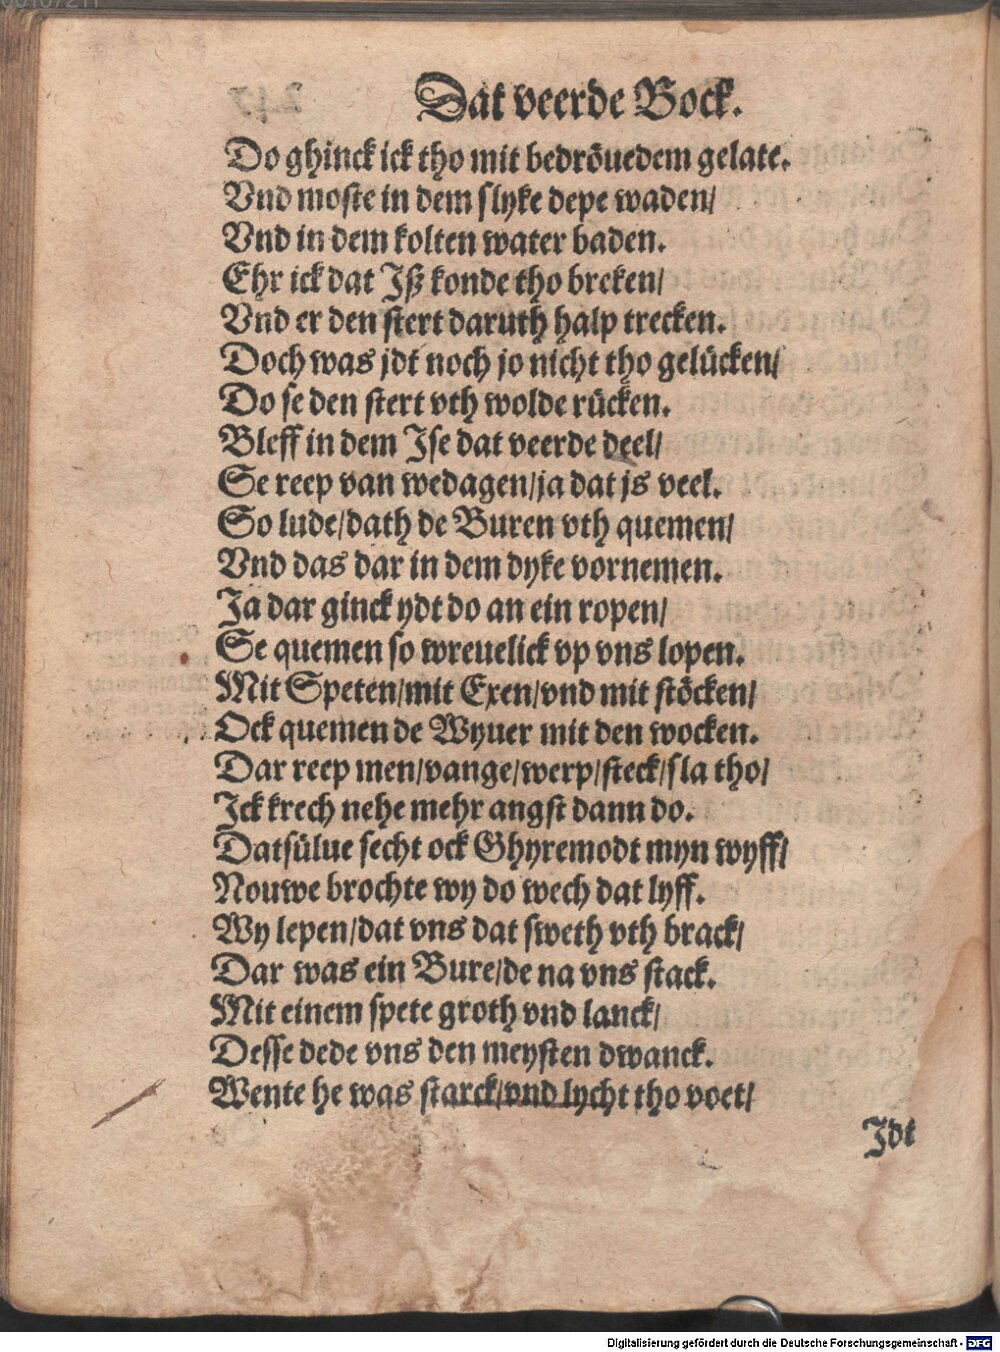 Dat veerde Bock.
Do ghinck ick tho mit bedröuedem gelate.
Vnd moste in dem slyke depe waden/
Vnd in dem kolten water baden.
Ehr ick dat Jß konde tho breken/
Vnd er den stert daruth halp trecken.
Doch was jdt noch jo nicht tho gelücken/
Do se den stert vth wolde rücken.
Bleff in dem Jse dat veerde deel/
Se reep van wedagen/ja dat js veel.
So lude/dath de Buren vth quemen/
Vnd das dar in dem dyke vornemen.
Ja dar ginck ydt do an ein ropen/
Se quemen so wreuelick vp vns lopen.
Mit Speten/mit Exen/vnd mit stöcken/
Ock quemen de Wyuer mit den wocken.
Dar reep men/vange/werp/steck/sla tho/
Jck krech nehe mehr angst dann do.
Datsülue secht ock Ghyremodt myn wyff/
Nouwe brochte wy do wech dat lyff.
Wy lepen/dat vns dat sweth vth brack/
Dar was ein Bure/de na vns stack.
Mit einem spete groth vnd lanck/
Desse dede vns den meysten dwanck.
Wente he was starck/vnd lycht tho voet/
Jdt
Digitalisierung gefördert durch die Deutsche Forschungsgemeinschaft - DFG